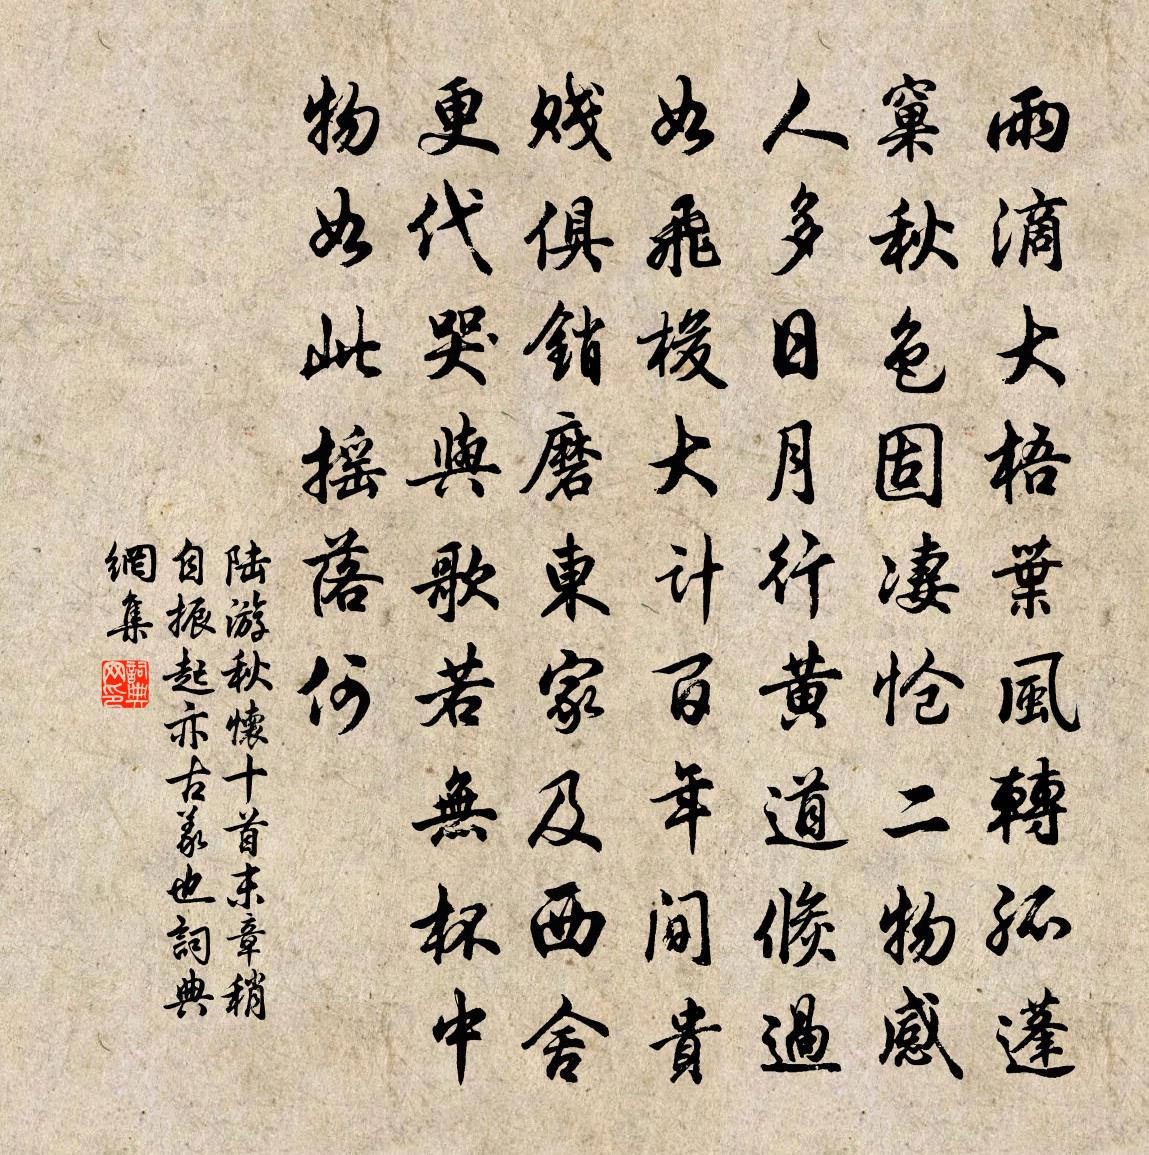 雨滴大梧葉風轉孤蓬
窠秋色固凄愴二物感
人多日月行黄道倏過
如飛梭大計百年間貴
賤俱銷磨東家及西舍
更代哭與歌若無杯中
物如此摇落何
陆游秋懷十首末章稍
自振起亦古義也詞典
網集
詞典网印